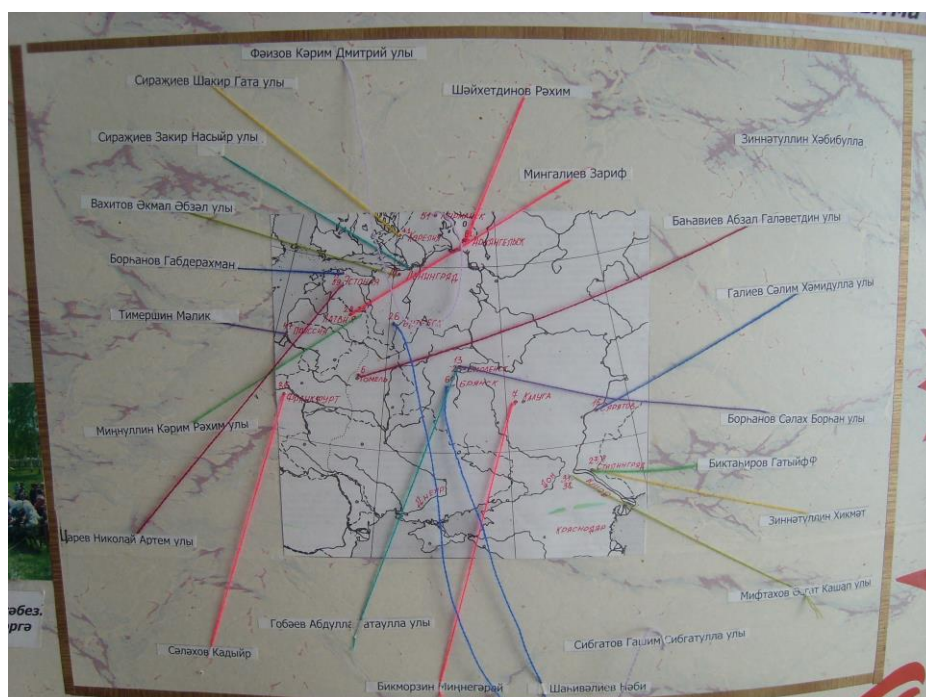 Фәизов Кәрим Дмитрий улы
Сираҗиев Шакир Гата улы
Шәйхетдинов Рәхим
Сираҗиев Закир Насыйр улы
Зиннәтуллин Хәбибулла
Мингалиев Зариф
Вахитов Әкмал Әбзәл улы
Баһавиев Абзал Галәветдин улы
Борһанов Габдерахман
Галиев Сәлим Хәмидулла улы
Тимершин Мәлик
Миңнуллин Кәрим Рәхим улы
Борһанов Сәлах Борһан улы
Биктаһиров ГатыйфФ
Зиннәтуллин Хикмәт
Царев Николай Артем улы
Мифтахов Кашап улы
Гобәев Абдулла Гатаулла улы
Сәләхов Кадыйр
Сибгатов Гашим Сибгатулла улы
Бикморзин Миңнегәрәй
Шаһивәлиев Нәби
КАРЕЛИЯ
АРХАНГЕЛЬСК
ЛЕНИНГРАД
ЛАТВИЯ
26
5
ГОМЕЛЬ
13
СМОЛЕНСК
БРЯНСК
7 КАЛУГА
ФРАНКФУРТ
САРАТОВ
СТАЛИНГРАД
КРАСНОДАР
әбез.
әргә